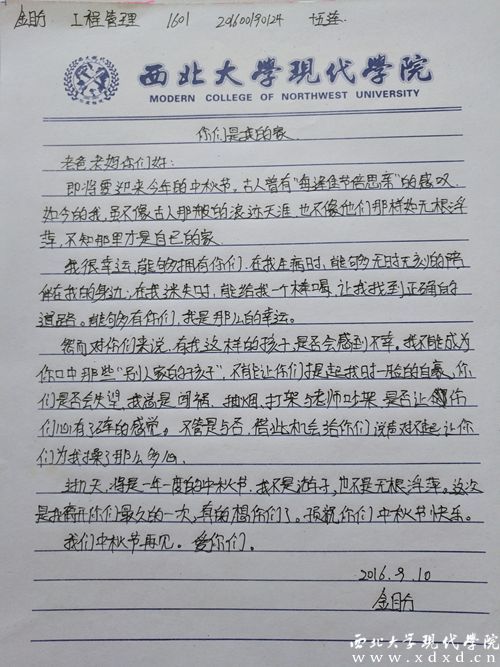 金盼 工程管理 1601 20160190124 伍莲
西北大学现代学院
MODERN COLLEGE OF NORTHWEST UNIVERSITY
你们是我的家
老爸老妈你们好:
即将要迎来今年的中秋节,古人曾有“每逢佳节倍思亲”的感叹
如今的我,虽不像古人那般的浪迹天涯,也不像他们那样如无根浮
萍,不知那里才是自己的家
我很幸运,能够拥有你们,在我生病时,能够无时无刻的陪
伴在我的身边;在我迷失时,能给我一个棒喝,让我找到正确的
道路。能够有你们,我是那么的幸运。
然而对你们来说,有我这样的孩子,是否会感到不幸。我不能成为
你口中那些“别人家的孩子”,不能让你们提起我时一脸的自豪、你
们是否会失望,我总是闯祸、抽烟、打架与老师吵架是否让你
们心有了疼的感觉。不管是与否,借此机会给你们说声对不起,让你
们为我操了那么多心。
过几天,将是一年一度的中秋节,我不是游子,也不是无根浮萍。这次
是我离开你们最久的一次,真的想你们了。预祝你们中秋节快乐。
我们中秋节再见。爱你们。
2016.9.10
金盼
西北大学现代学院
www.xdxd.cn